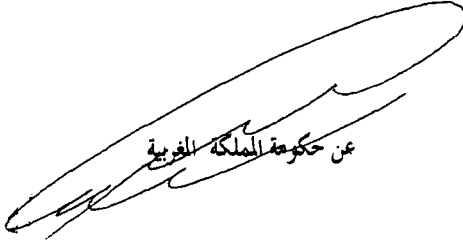 عن حكومة المملكة المغربية